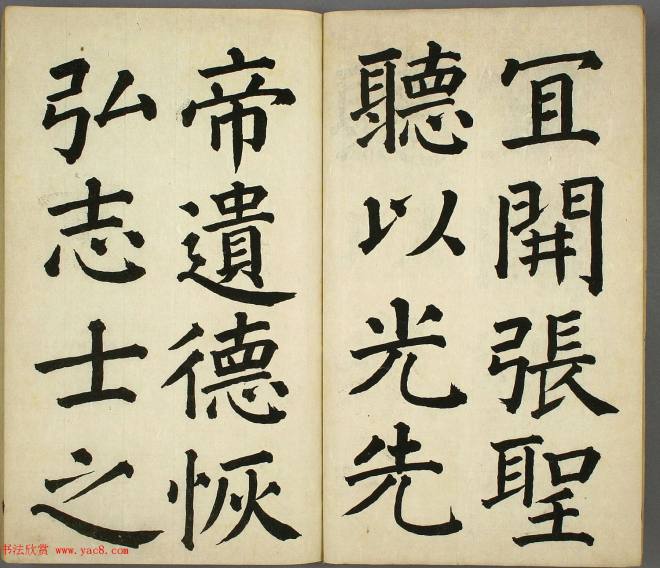 冝開張聖
聽以光先
帝遺德恢
弘志士之
书法欣赏 www.yac8.com